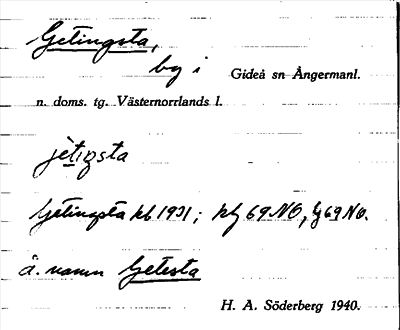 Getingsta,
by i Gideå sn Ångermanl.
n. doms. tg. Västernorrlands l.
jètiqsta
Getingsta kb 1931; kfg 69 NO, lg 69 NO.
Ä. namn Getesta
H. A. Söderberg 1940.